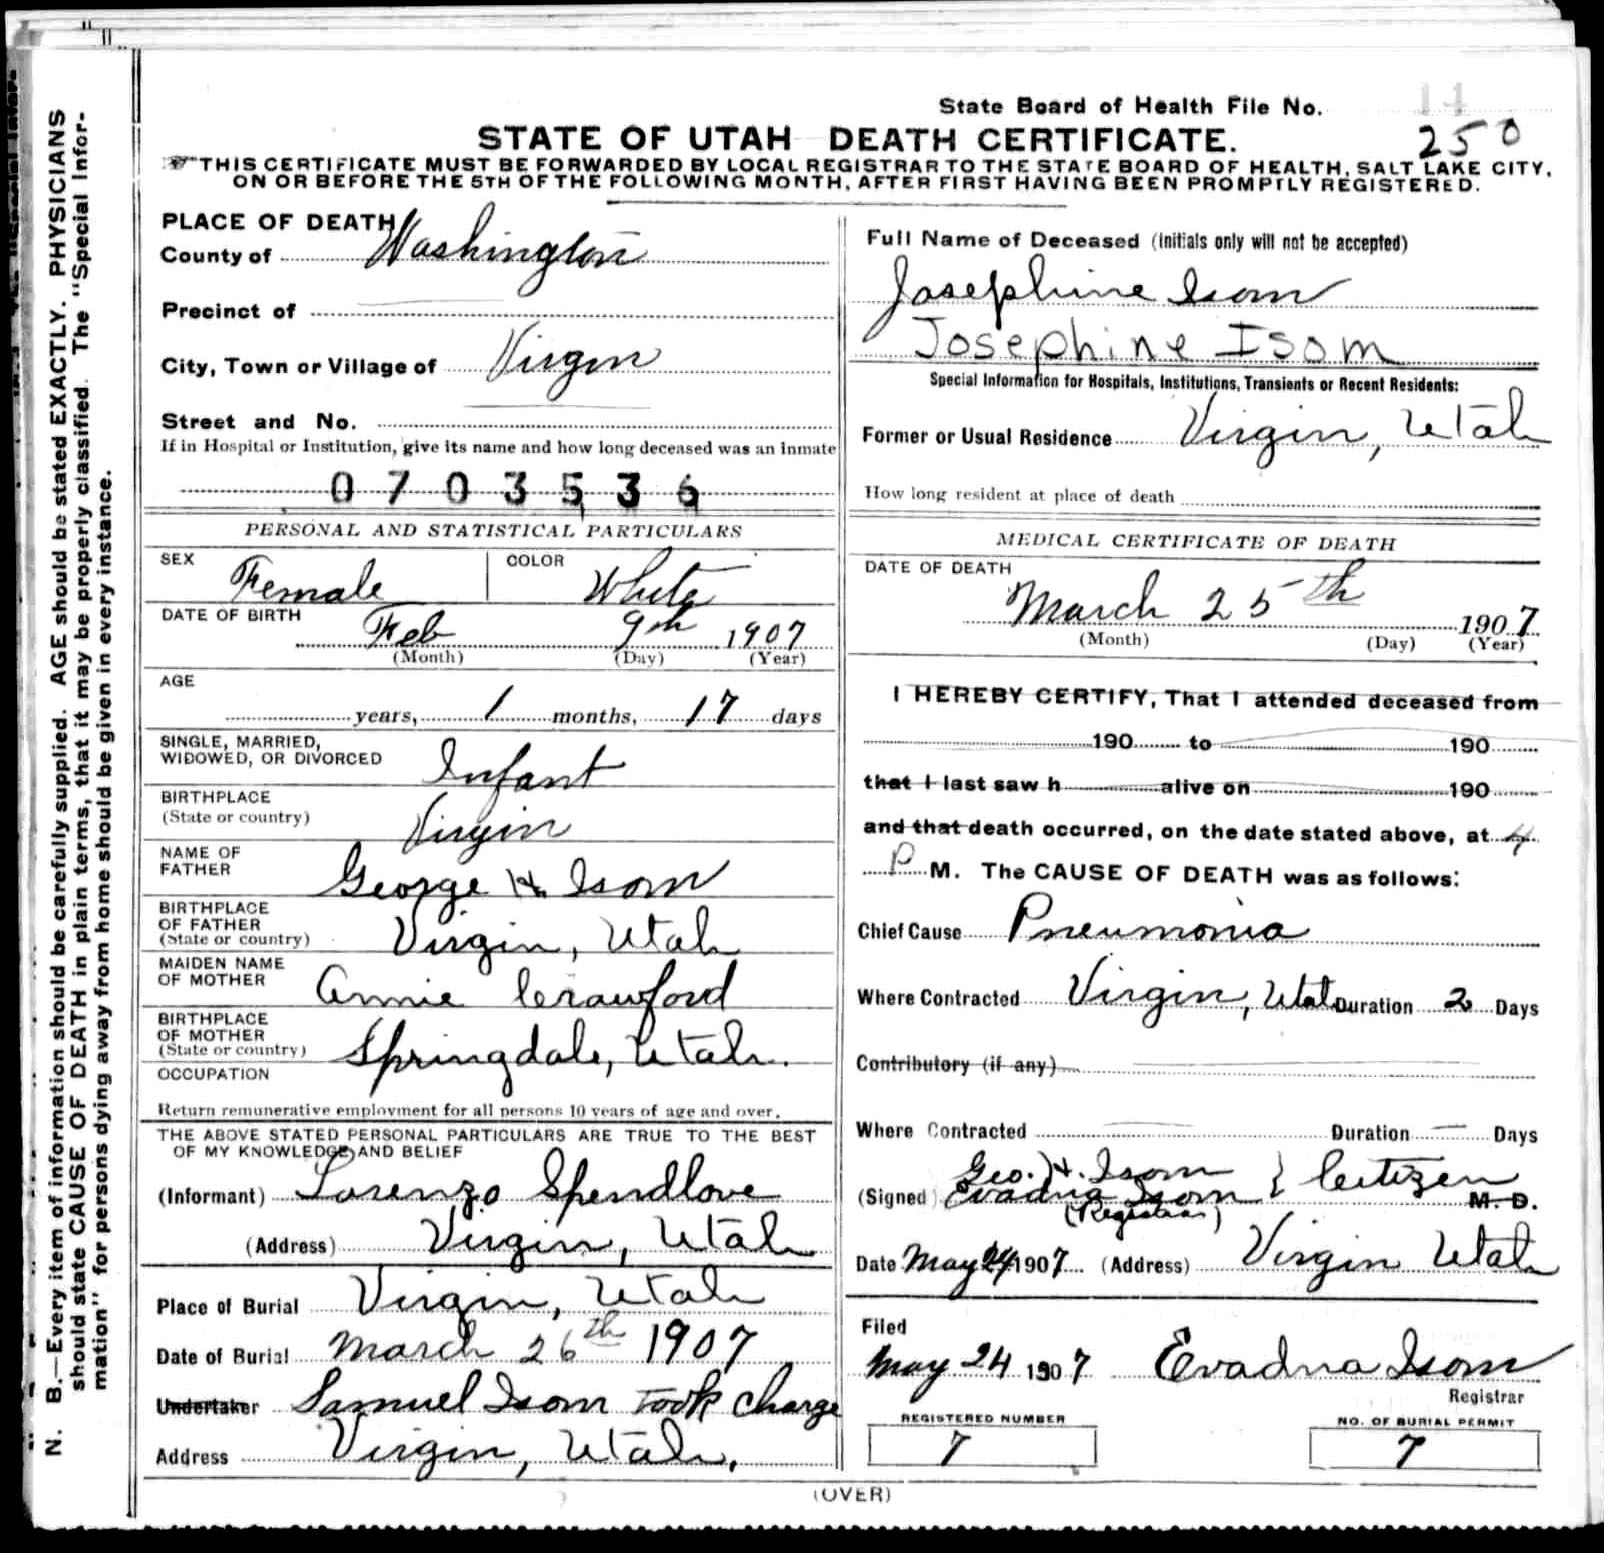 N. B.—Every item of information should be carefully supplied. AGE should be stated EXACTLY. PHYSICIANS
should state CAUSE OF DEATH in plain terms, that it may be properly classified. The "Special Infor-
mation" for persons dying away from home should be given in every instance.
State Board of Health File No.
250
STATE OF UTAH DEATH CERTIFICATE.
THIS CERTIFICATE MUST BE FORWARDED BY LOCAL REGISTRAR TO THE STATE BOARD OF HEALTH, SALT LAKE CITY,
ON OR BEFORE THE 5TH OF THE FOLLOWING MONTH, AFTER FIRST HAVING BEEN PROMPTLY REGISTERED.
PLACE OF DEATH
County of Washington
Precinct of
City, Town or Village of Virgin
Street and No.
If in Hospital or Institution, give its name and how long deceased was an inmate
0703536
PERSONAL AND STATISTICAL PARTICULARS
SEX Female COLOR White
DATE OF BIRTH Feb 9th 1907
(Month) (Day) (Year)
AGE
years, 1 months, 17 days
SINGLE, MARRIED,
WIDOWED, OR DIVORCED Infant
BIRTHPLACE
(State or country) Virgin
NAME OF
FATHER George H Isom
BIRTHPLACE
OF FATHER
(State or country) Virgin, Utah
MAIDEN NAME
OF MOTHER Annie Crawford
BIRTHPLACE
OF MOTHER
(State or country) Springdale, Utah.
OCCUPATION
Return remunerative employment for all persons 10 years of age and over.
THE ABOVE STATED PERSONAL PARTICULARS ARE TRUE TO THE BEST
OF MY KNOWLEDGE AND BELIEF
(Informant) Lorenzo Spendlove
(Address) Virgin, Utah
Place of Burial Virgin, Utah
Date of Burial March 26th 1907
Undertaker Samuel Isom took charge
Address Virgin, Utah.
Full Name of Deceased (Initials only will not be accepted)
Josephine Isom
Josephine Isom
Special Information for Hospitals, Institutions, Transients or Recent Residents:
Former or Usual Residence Virgin, Utah
How long resident at place of death
MEDICAL CERTIFICATE OF DEATH
DATE OF DEATH
March 25th 1907
(Month) (Day) (Year)
I HEREBY CERTIFY, That I attended deceased from
190 to 190
that I last saw h alive on 190
and that death occurred, on the date stated above, at 4
P M. The CAUSE OF DEATH was as follows:
Chief Cause Pneumonia
Where Contracted Virgin, Utah Duration 2 Days
Contributory (if any)
Where Contracted Duration Days
Geo. H. Isom
(Signed) Evadna Isom } Citizen M. D.
(Registrar)
Date May 24 1907 (Address) Virgin Utah
Filed
May 24 1907 Evadna Isom
Registrar
REGISTERED NUMBER
7
NO. OF BURIAL PERMIT
7
(OVER)